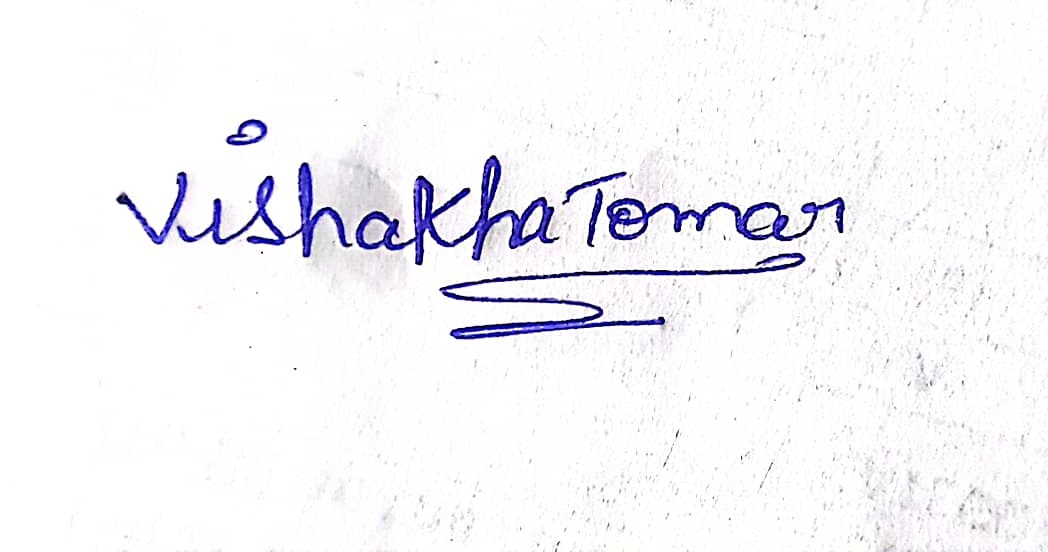 Vishakha Tomar